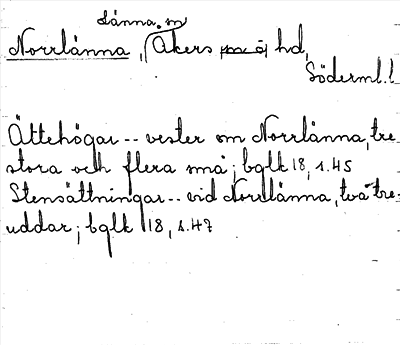 Länna sn
Norrlänna, Åkers hd,
Söderml.l.
Ättehögar -- vester om Norrlänna, tre
stora och flera små; bglk 18, s. 45
Stensättningar -- vid Norrlänna, två tre-
uddar; bglk 18, s. 47